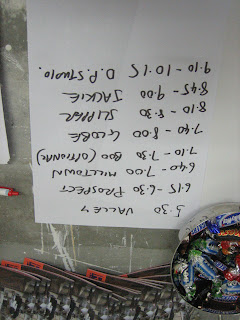 5.30 VALLEY
6.15 - 6.30 PROSPECT
6.40 - 7.00 MILLTOWN
7.10 - 7.30 BOO
7.40 - 8.00 GLOBE
8.10 - 8.30 SLIPPER
8.45 - 9.00 JACKIE
9.10 - 10.15 D.P. STUDIO.